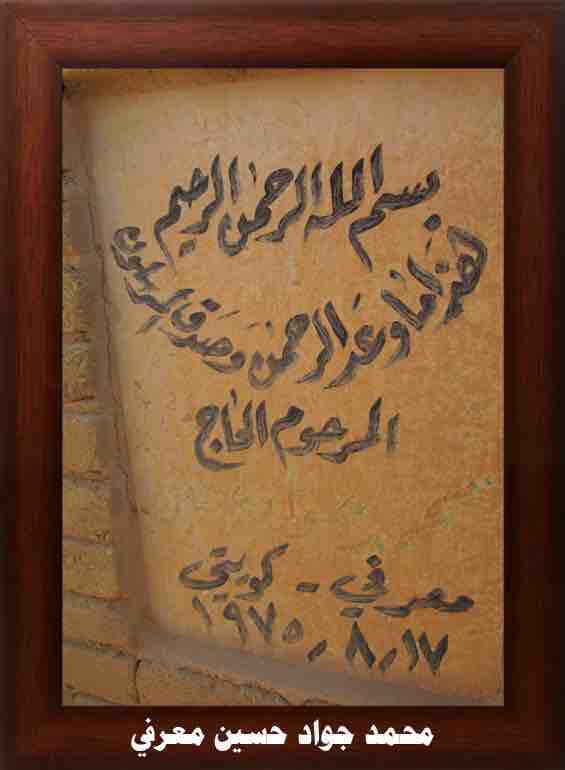 بسم الله الرحمن الرحيم
هذا ما وعد الرحمن وصدق المرسلون
المرحوم الحاج
معرفي - كويتي
١٩٧٥،٨،١٧
محمد جواد حسين معرفي